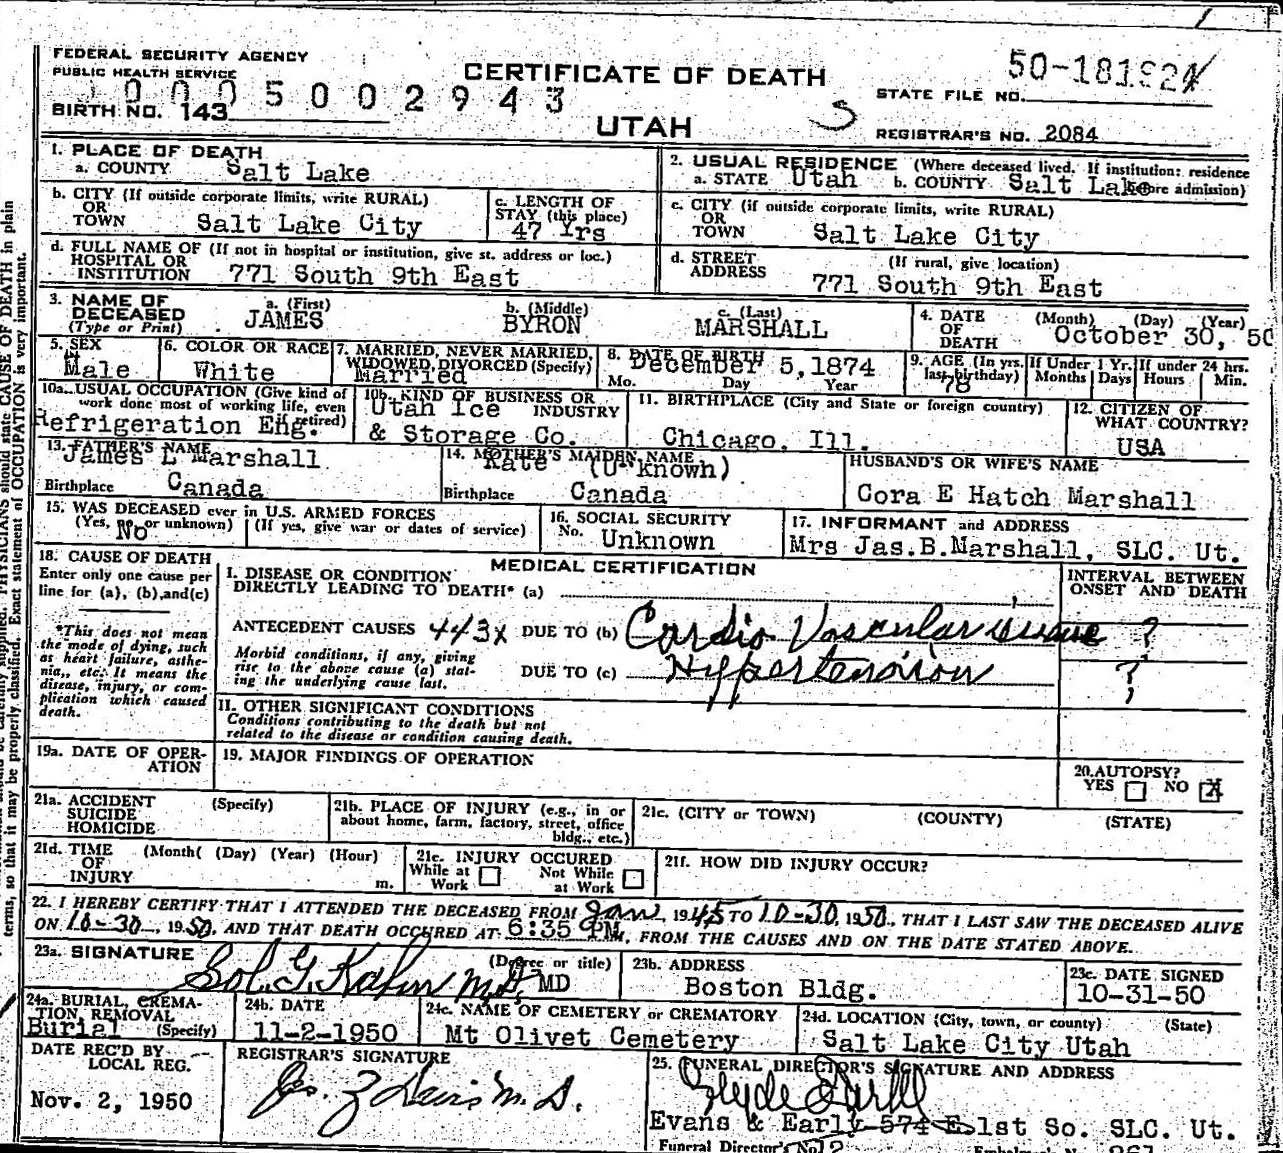 FEDERAL SECURITY AGENCY
PUBLIC HEALTH SERVICE
CERTIFICATE OF DEATH
UTAH
0005002943
BIRTH NO. 143
STATE FILE NO.
REGISTRAR'S NO. 2084
1. PLACE OF DEATH
a. COUNTY Salt Lake
2. USUAL RESIDENCE (Where deceased lived. If institution: residence
a. STATE Utah b. COUNTY Salt Lake before admission)
b. CITY (If outside corporate limits, write RURAL)
OR
TOWN Salt Lake City
c. LENGTH OF
STAY (this place)
47 Yrs
c. CITY (if outside corporate limits, write RURAL)
OR
TOWN Salt Lake City
d. FULL NAME OF (If not in hospital or institution, give st. address or loc.)
HOSPITAL OR
INSTITUTION 771 South 9th East
d. STREET (If rural, give location)
ADDRESS 771 South 9th East
3. NAME OF DECEASED
(Type or Print)
a. (First) JAMES
b. (Middle) BYRON
c. (Last) MARSHALL
4. DATE OF DEATH (Month) (Day) (Year)
October 30, 50
5. SEX
Male
6. COLOR OR RACE
White
7. MARRIED, NEVER MARRIED,
WIDOWED, DIVORCED (Specify)
Married
8. DATE OF BIRTH
December 5, 1874
Mo. Day Year
9. AGE (In yrs. last birthday)
If Under 1 Yr. Months Days
If under 24 hrs. Hours Min.
10a. USUAL OCCUPATION (Give kind of
work done most of working life, even
Refrigeration Eng. retired)
10b. KIND OF BUSINESS OR
Utah Ice INDUSTRY
& Storage Co.
11. BIRTHPLACE (City and State or foreign country)
Chicago, Ill.
12. CITIZEN OF
WHAT COUNTRY?
USA
13. FATHER'S NAME
James L Marshall
Birthplace Canada
14. MOTHER'S MAIDEN NAME
Kate (Unknown)
Birthplace Canada
HUSBAND'S OR WIFE'S NAME
Cora E Hatch Marshall
15. WAS DECEASED ever in U.S. ARMED FORCES
(Yes, no, or unknown) (If yes, give war or dates of service)
No
16. SOCIAL SECURITY
No. Unknown
17. INFORMANT and ADDRESS
Mrs Jas.B.Marshall, SLC. Ut.
18. CAUSE OF DEATH
Enter only one cause per
line for (a), (b), and (c)
*This does not mean
the mode of dying, such
as heart failure, asthe-
nia,, etc. It means the
disease, injury, or com-
plication which caused
death.
MEDICAL CERTIFICATION
I. DISEASE OR CONDITION
DIRECTLY LEADING TO DEATH* (a)
INTERVAL BETWEEN
ONSET AND DEATH
ANTECEDENT CAUSES 443x DUE TO (b) Cardio Vascular disease ?
Morbid conditions, if any, giving
rise to the above cause (a) stat-
ing the underlying cause last.
DUE TO (c) Hypertension ?
II. OTHER SIGNIFICANT CONDITIONS
Conditions contributing to the death but not
related to the disease or condition causing death.
19a. DATE OF OPER-
ATION
19. MAJOR FINDINGS OF OPERATION
20. AUTOPSY?
YES NO X
21a. ACCIDENT (Specify)
SUICIDE
HOMICIDE
21b. PLACE OF INJURY (e.g., in or
about home, farm, factory, street, office
bldg., etc.)
21c. (CITY or TOWN) (COUNTY) (STATE)
21d. TIME (Month( (Day) (Year) (Hour)
OF
INJURY m.
21e. INJURY OCCURED
While at Work Not While at Work
21f. HOW DID INJURY OCCUR?
22. I HEREBY CERTIFY THAT I ATTENDED THE DECEASED FROM Jan, 1945 TO 10-30, 1950, THAT I LAST SAW THE DECEASED ALIVE
ON 10-30, 1950, AND THAT DEATH OCCURED AT 6:35 PM, FROM THE CAUSES AND ON THE DATE STATED ABOVE.
23a. SIGNATURE (Degree or title)
Sol. G. Kahn M.D. MD
23b. ADDRESS
Boston Bldg.
23c. DATE SIGNED
10-31-50
24a. BURIAL, CREMA-
TION, REMOVAL
Burial (Specify)
24b. DATE
11-2-1950
24c. NAME OF CEMETERY or CREMATORY
Mt Olivet Cemetery
24d. LOCATION (City, town, or county) (State)
Salt Lake City Utah
DATE REC'D BY
LOCAL REG.
Nov. 2, 1950
REGISTRAR'S SIGNATURE
Davis M.D.
25. FUNERAL DIRECTOR'S SIGNATURE AND ADDRESS
Evans & Early 574 E 1st So. SLC. Ut.
Funeral Director's No